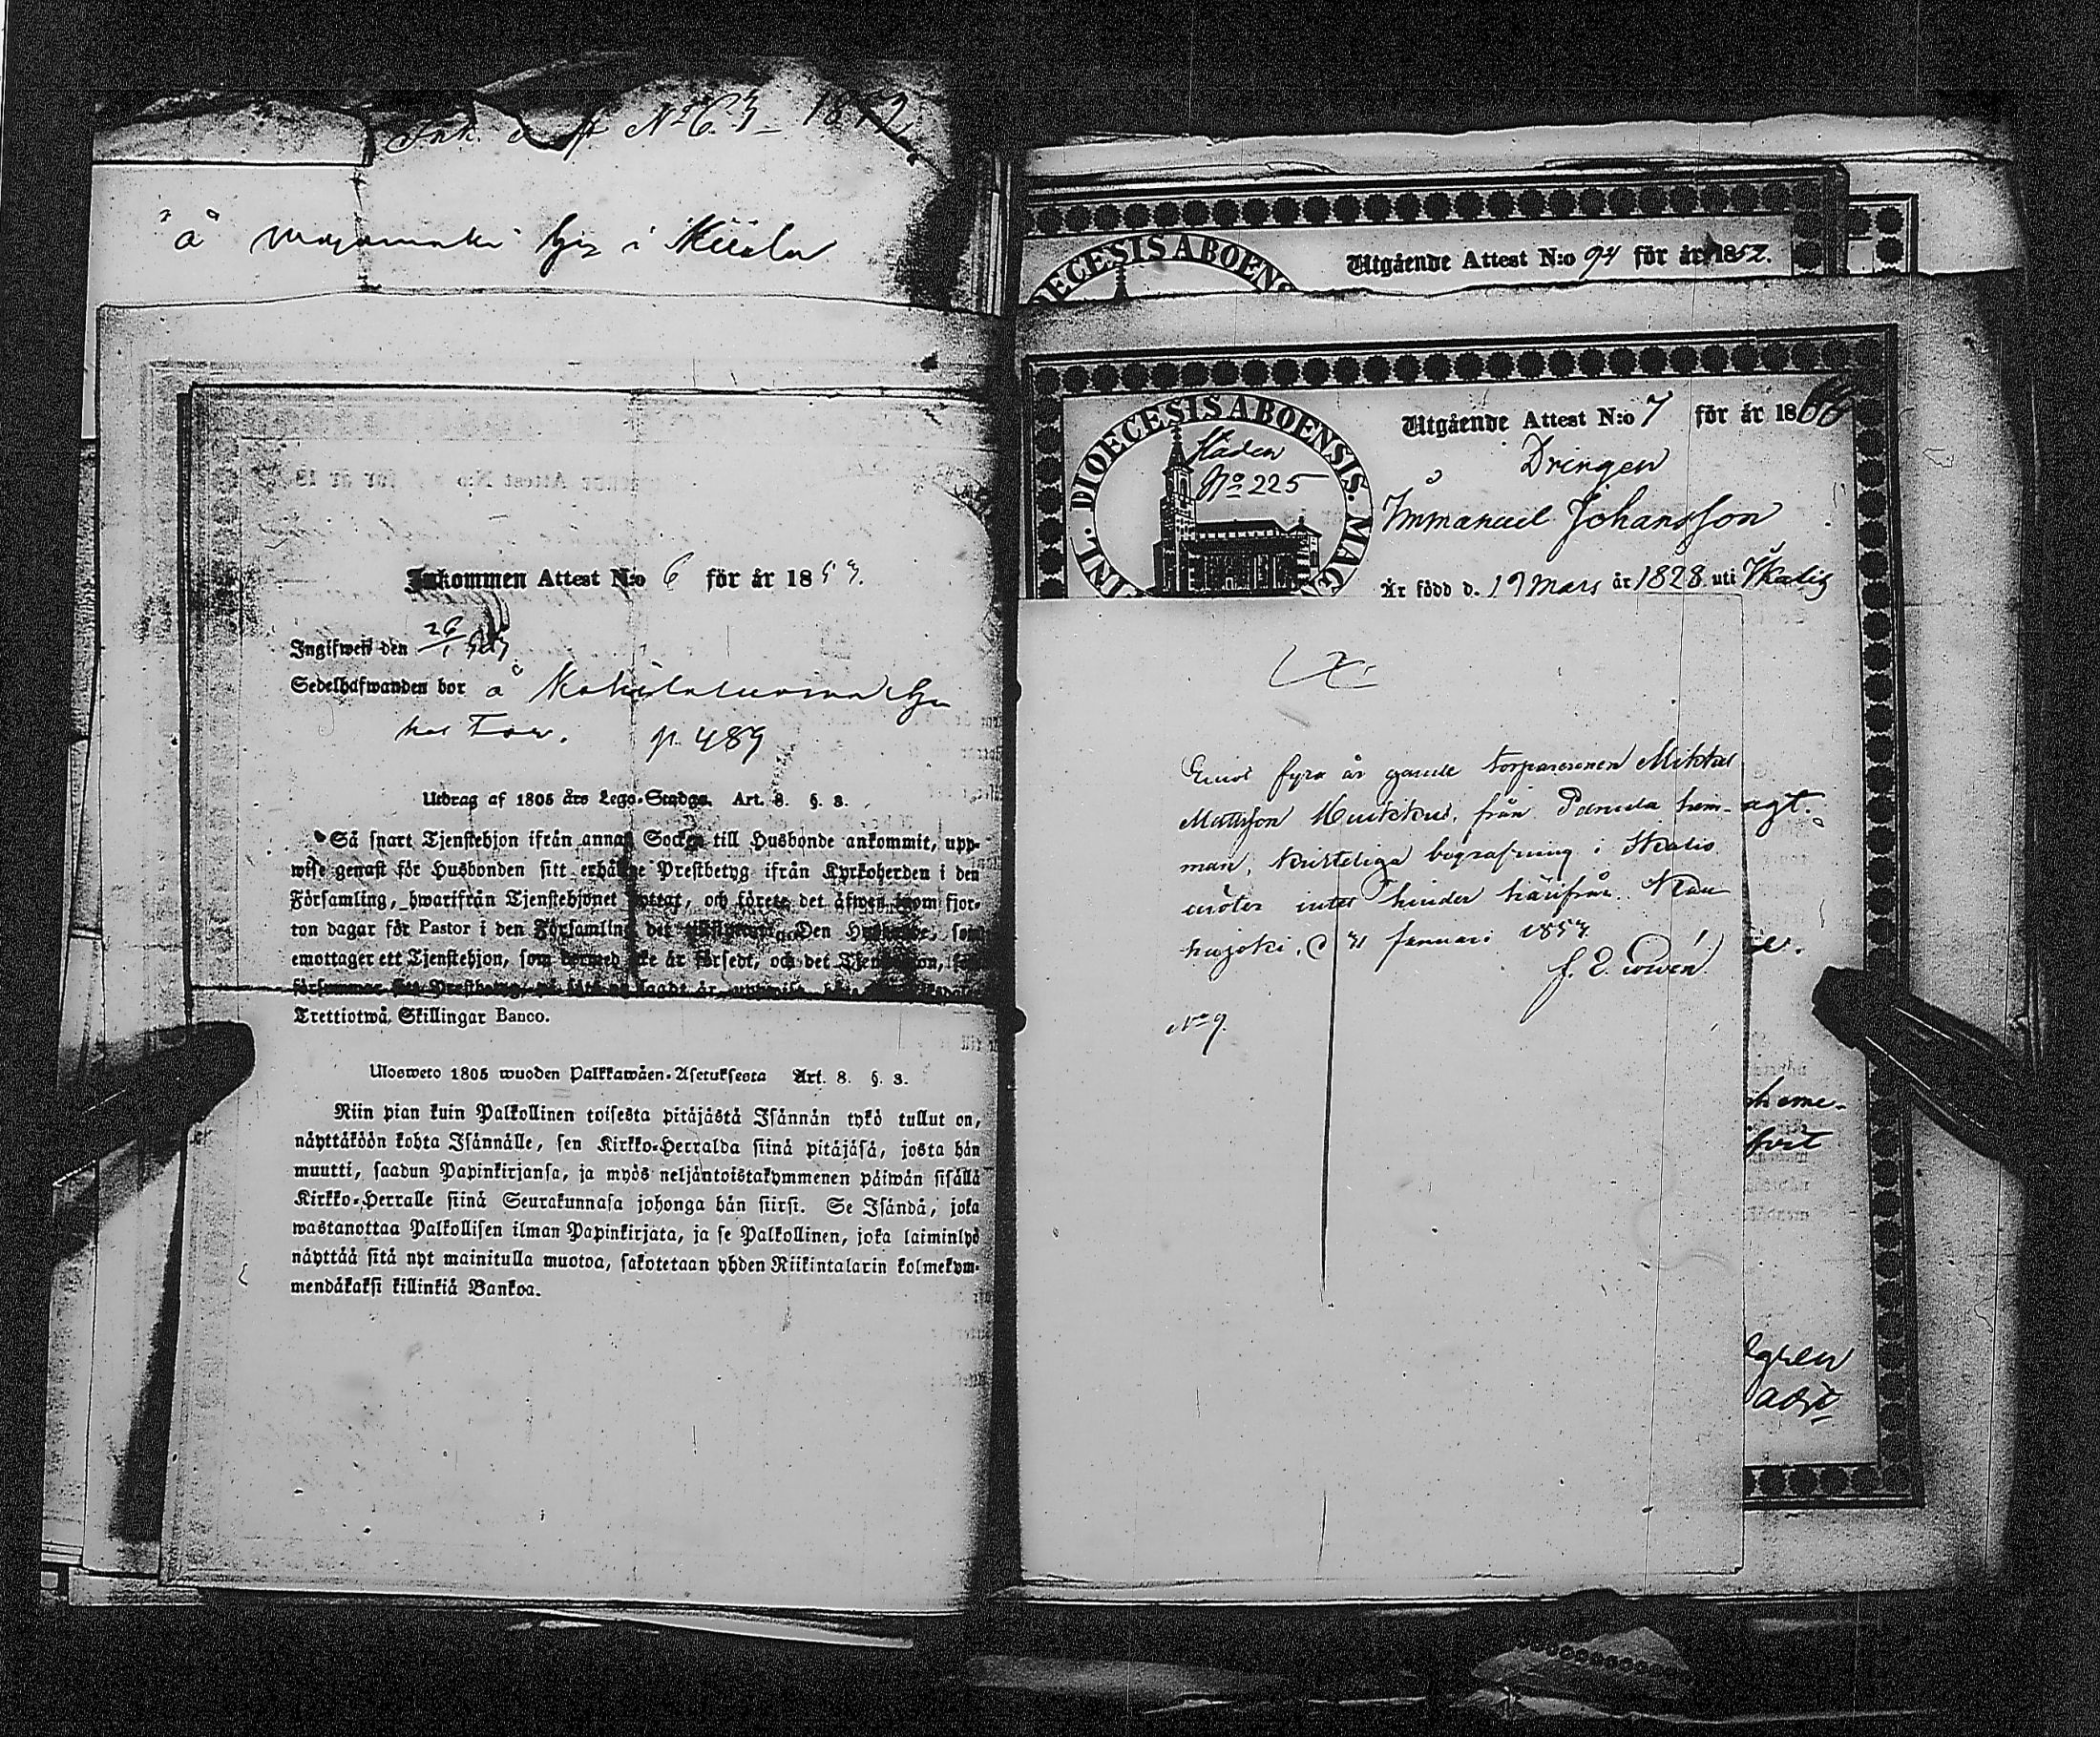 Ink. att N:o 63 1852
å hg i
Inkommen Attest N:o 6 för år 1853.
Ingifwen den 26/1 53
Sedelhafwanden bor å
hos p. 489
Utdrag af 1805 års Lego-Stadga. Art. 8. §. 3.
Så snart Tjenstehjon ifrån annan Socken till Husbonde ankommit, upp-
wise genast för Husbonden sitt erhållne Prestbetyg ifrån Kyrkoherden i den
Församling, hwarifrån Tjenstehjonet flyttat, och förete det äfwen inom fjor-
ton dagar för Pastor i den Församling det Den Husbonde, som
emottager ett Tjenstehjon, som dermed icke är försedt, och det Tjenstehjon, som
försummar sitt Prestbetyg, på sätt nu sagdt är, uppwisa, böte
Trettiotwå Skillingar Banco.
Ulosweto 1805 wuoden Palkkawäen-Asetuksesta Art. 8. §. 3.
Niin pian kuin Palkollinen toisesta pitäjästä Isännän tykö tullut on,
näyttäköön kohta Isännälle, sen Kirkko-Herralda siinä pitäjäsä, josta hän
muutti, saadun Papinkirjansa, ja myös neljäntoistakymmenen päiwän sisällä
Kirkko-Herralle siinä Seurakunnasa johonga hän siirsi. Se Isändä, joka
wastanottaa Palkollisen ilman Papinkirjata, ja se Palkollinen, joka laiminlyö
näyttää sitä nyt mainitulla muotoa, sakotetaan yhden Riikintalarin kolmekym-
mendäkaksi killinkiä Bankoa.
Utgående Attest N:o 94 för år 1852.
DIOECESIS ABOENSIS
Utgående Attest N:o 7 för år 1866
FINL. DIOECESIS ABOENSIS. MAG
Staden
No 225
Drängen
Immanuel Johansson
Är född d. 19 Mars år 1828 uti Ikalis
Emot fyra år gamle torparesonen Mikkel
Mattsson från hem-
man, kristeliga begrafning i Ikalis
möter intet hinder härifrån. Kan
kajoki, d 21 Januari 1853
No 9.
agt.
heme-
fört
gren
adj.